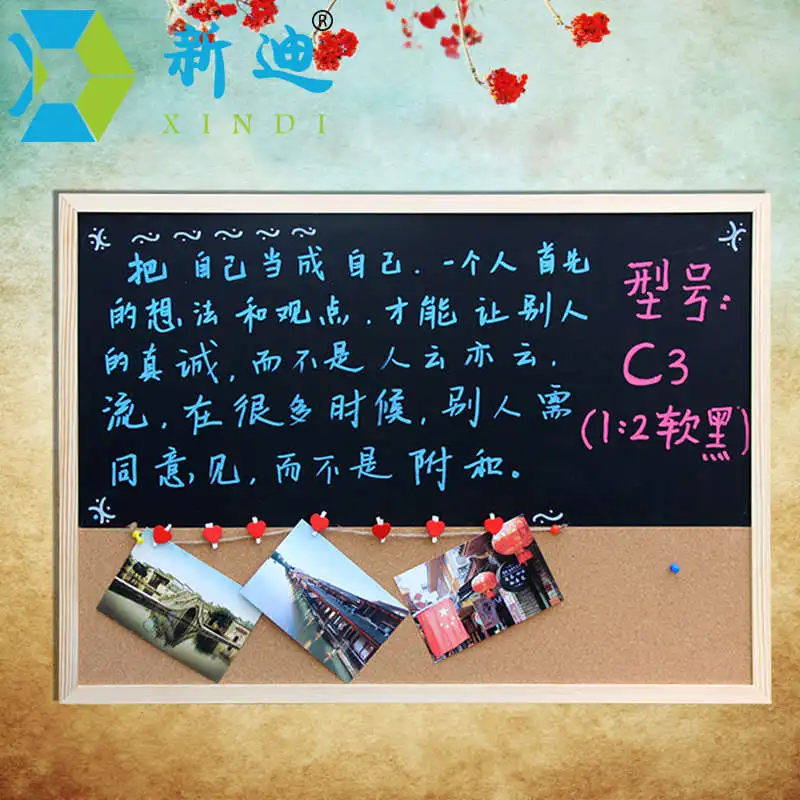 新迪®
XINDI
把自己当成自己.一个人首先
的想法和观点.才能让别人
的真诚,而不是人云亦云.
流,在很多时候,别人需
同意见,而不是附和。
型号:
C3
(1:2软黑)